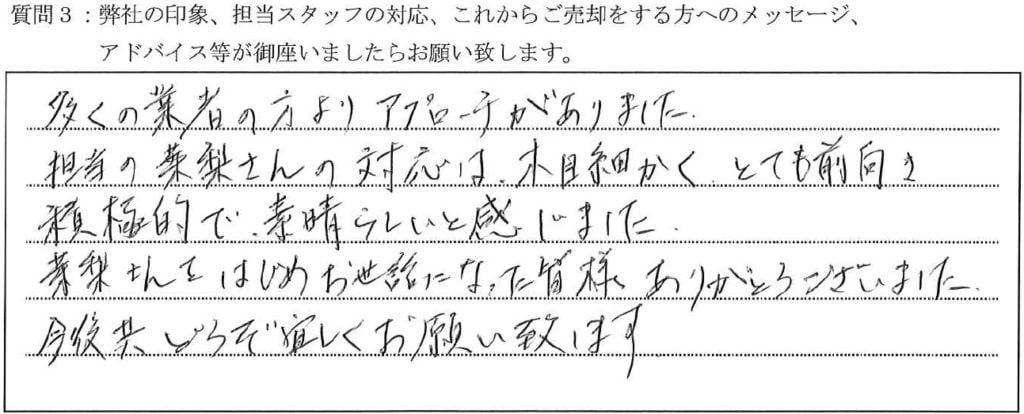 質問３：弊社の印象、担当スタッフの対応、これからご売却をする方へのメッセージ、
アドバイス等が御座いましたらお願い致します。
多くの業者の方よりアプローチがありました.
担当の葉梨さんの対応は、木目細かく、とても前向き
積極的で、素晴らしいと感じました.
葉梨さんをはじめお世話になった皆様、ありがとうございました.
今後共どうぞ宜しくお願い致します